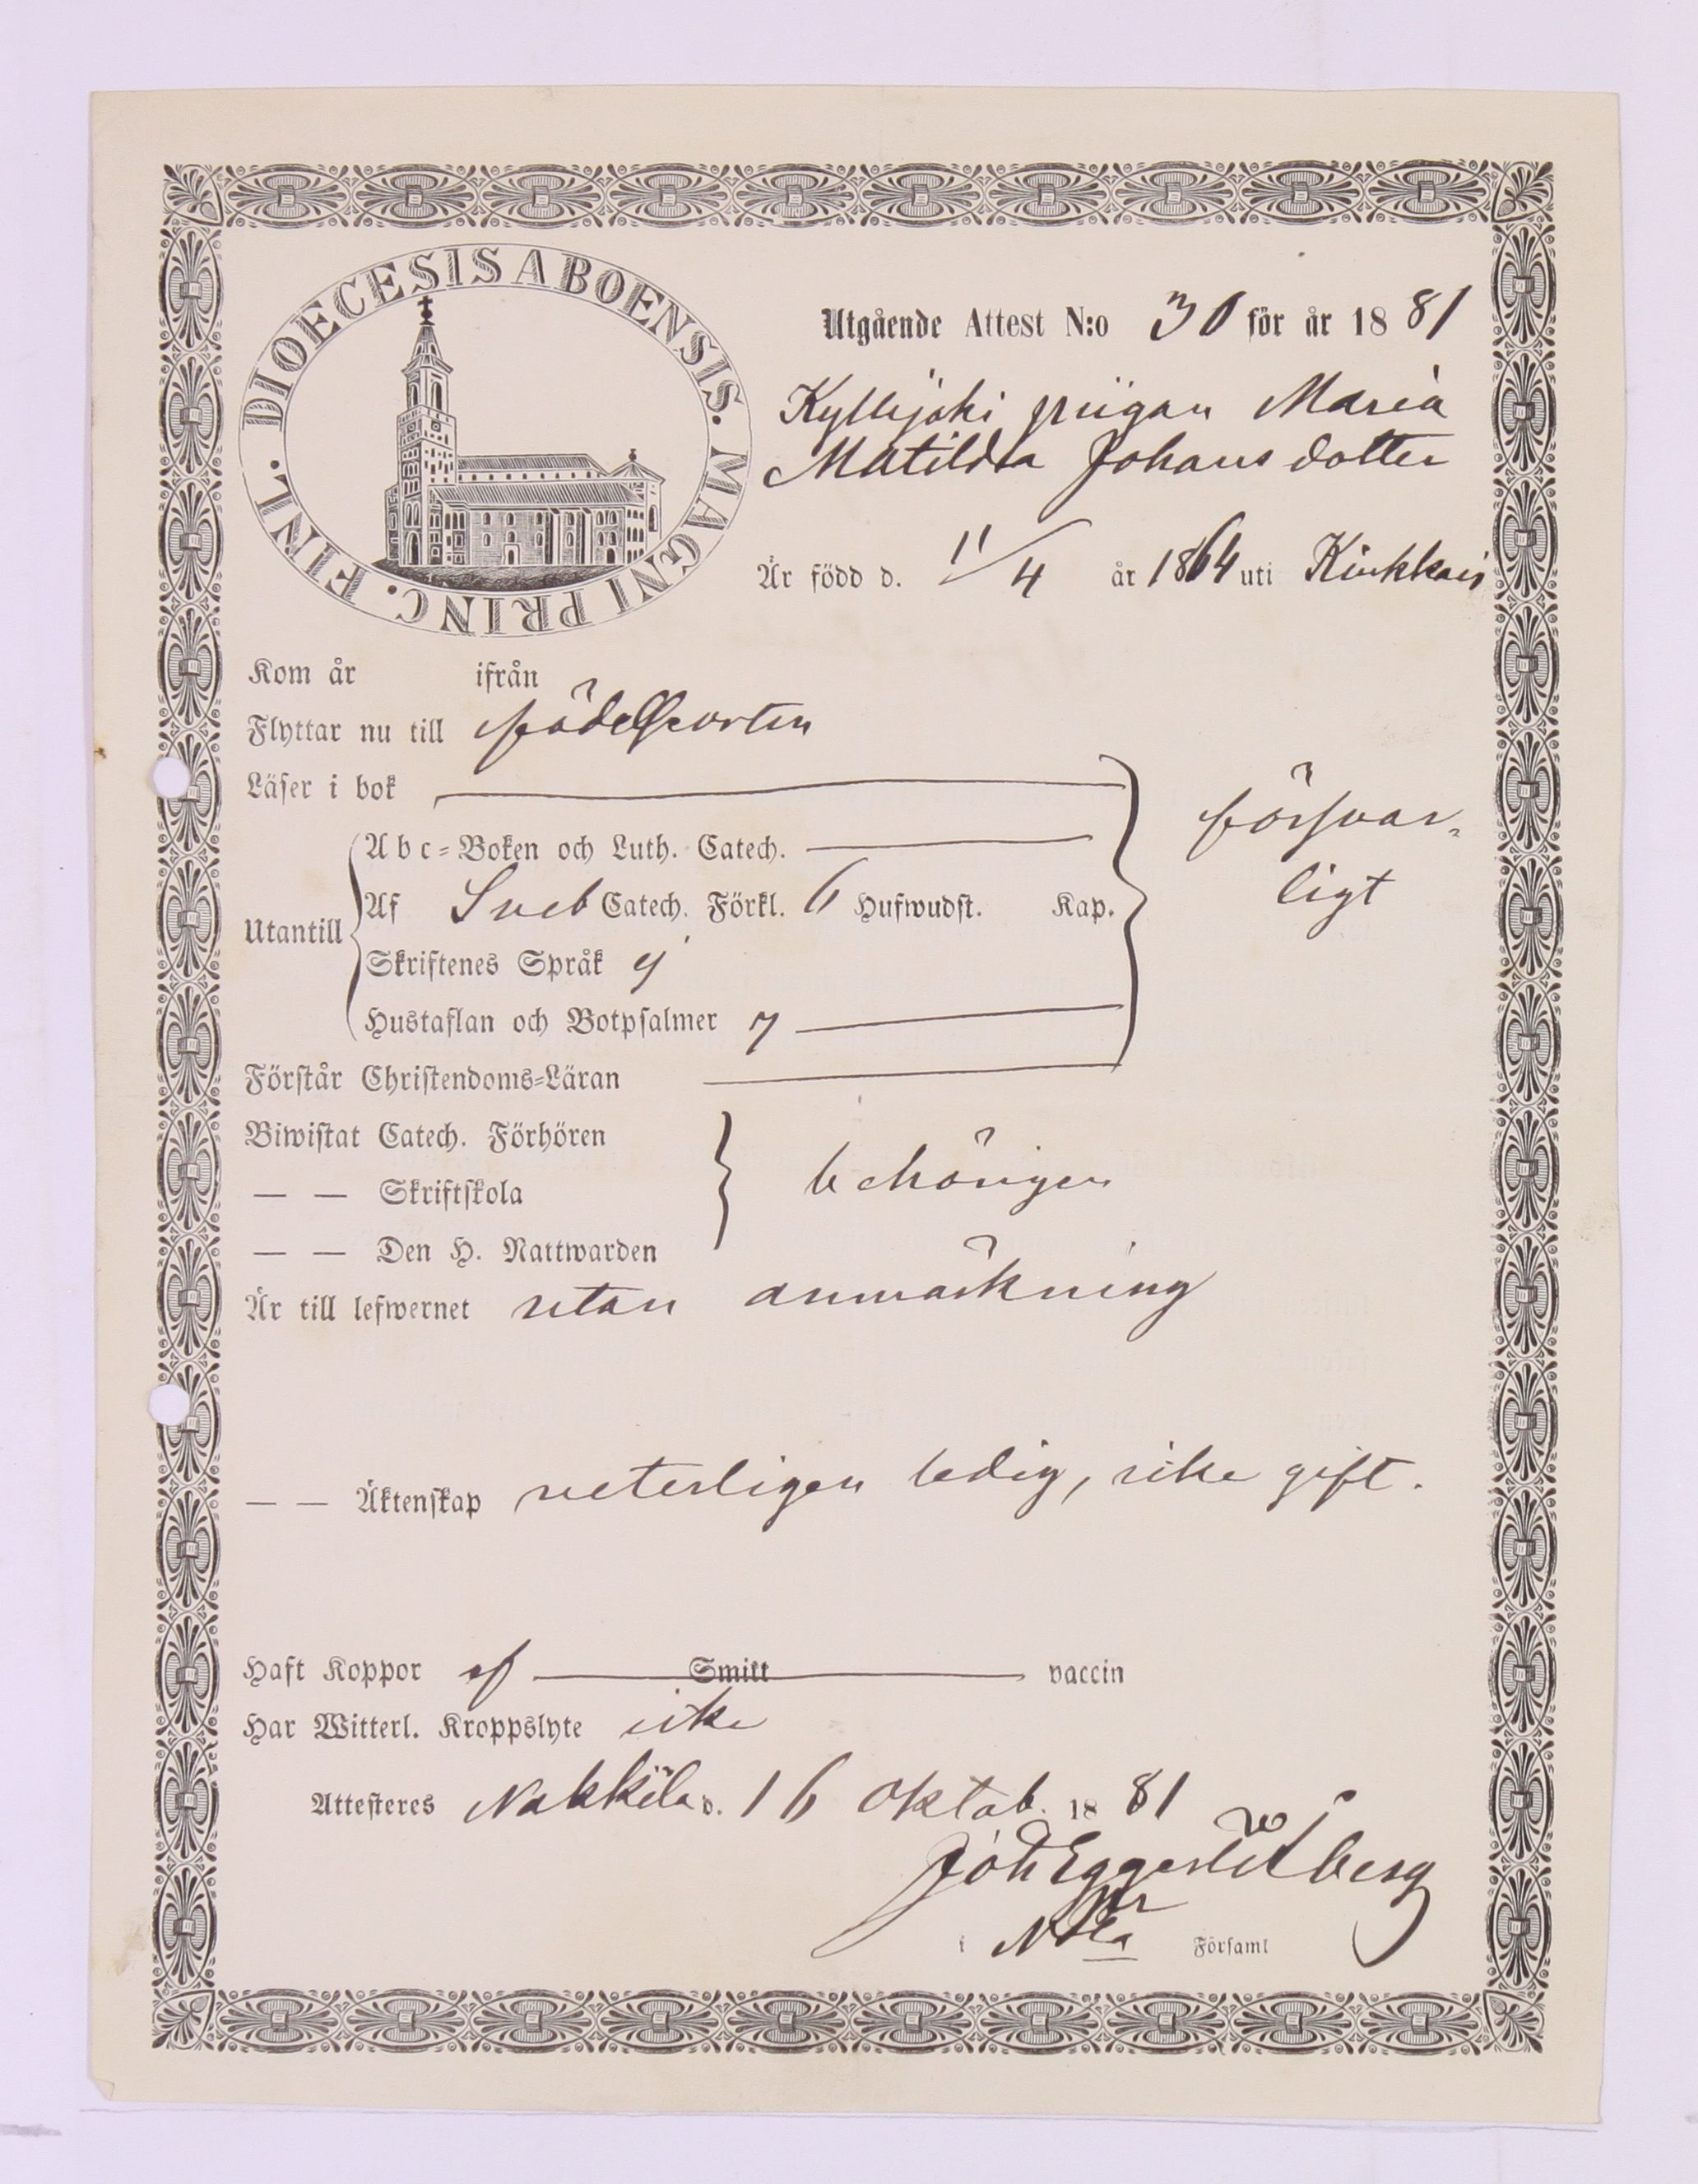 DIOECESIS ABOENSIS. MAGNI PRINC. FINL.
Utgående Attest N:o 30 för år 1881
Kyllijoki pigan Maria
Matilda Johansdotter
Är född d. 11/4 år 1864 uti Kinkkais
Kom år ifrån
Flyttar nu till födelseorten
Läser i bok
Abc-Boken och Luth. Catech.
Utantill Af Sveb Catech. Förkl. 6 Hufwudst. Kap.
Skriftenes Språk ej
Hustaflan och Botpsalmer 7
försvar-
ligt
Förstår Christendoms-Läran
Biwistat Catech. Förhören
— — Skriftskola behörigen
— — Den H. Nattwarden
Är till lefwernet utan anmärkning
— — Äktenskap veterligen ledig, icke gift.
Haft Koppor af Smitt vaccin
Har Witterl. Kroppslyte icke
Attesteres Nakkila d. 16 Oktob. 1881
i Nkla Församl